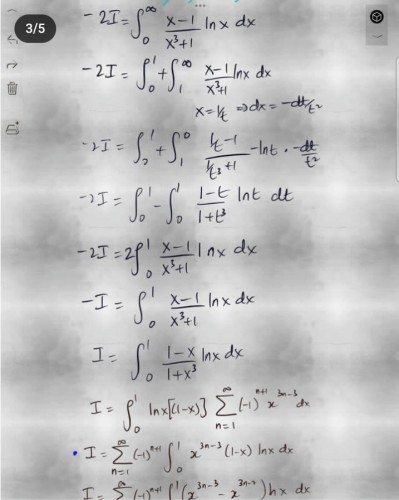 3/5
-2I = ∫₀^∞ (x-1)/(x³+1) ln x dx
-2I = ∫₀¹ + ∫₁^∞ (x-1)/(x³+1) ln x dx
x = 1/t ⇒ dx = -dt/t²
-2I = ∫₀¹ + ∫₁⁰ (1/t - 1)/(1/t³ + 1) - ln t · -dt/t²
-2I = ∫₀¹ - ∫₀¹ (1-t)/(1+t³) ln t dt
-2I = 2∫₀¹ (x-1)/(x³+1) ln x dx
-I = ∫₀¹ (x-1)/(x³+1) ln x dx
I = ∫₀¹ (1-x)/(1+x³) ln x dx
I = ∫₀¹ ln x [(1-x)] ∑_{n=1}^∞ (-1)^{n+1} x^{3n-3} dx
• I = ∑_{n=1}^∞ (-1)^{n+1} ∫₀¹ x^{3n-3} (1-x) ln x dx
I = ∑ (-1)^{n+1} ∫¹ (x^{3n-3} - x^{3n-2}) ln x dx